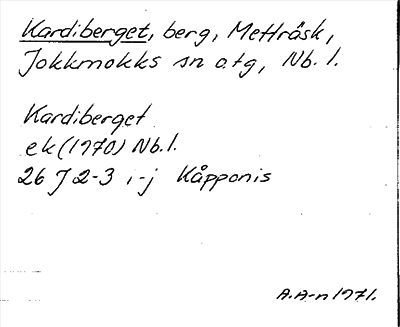 Kardiberget, berg, Metträsk,
Jokkmokks sn o. tg, Nb. l.
Kardiberget
ek (1970) Nb. l.
26 J 2-3 i-j Kåpponis
A. A-n 1971.